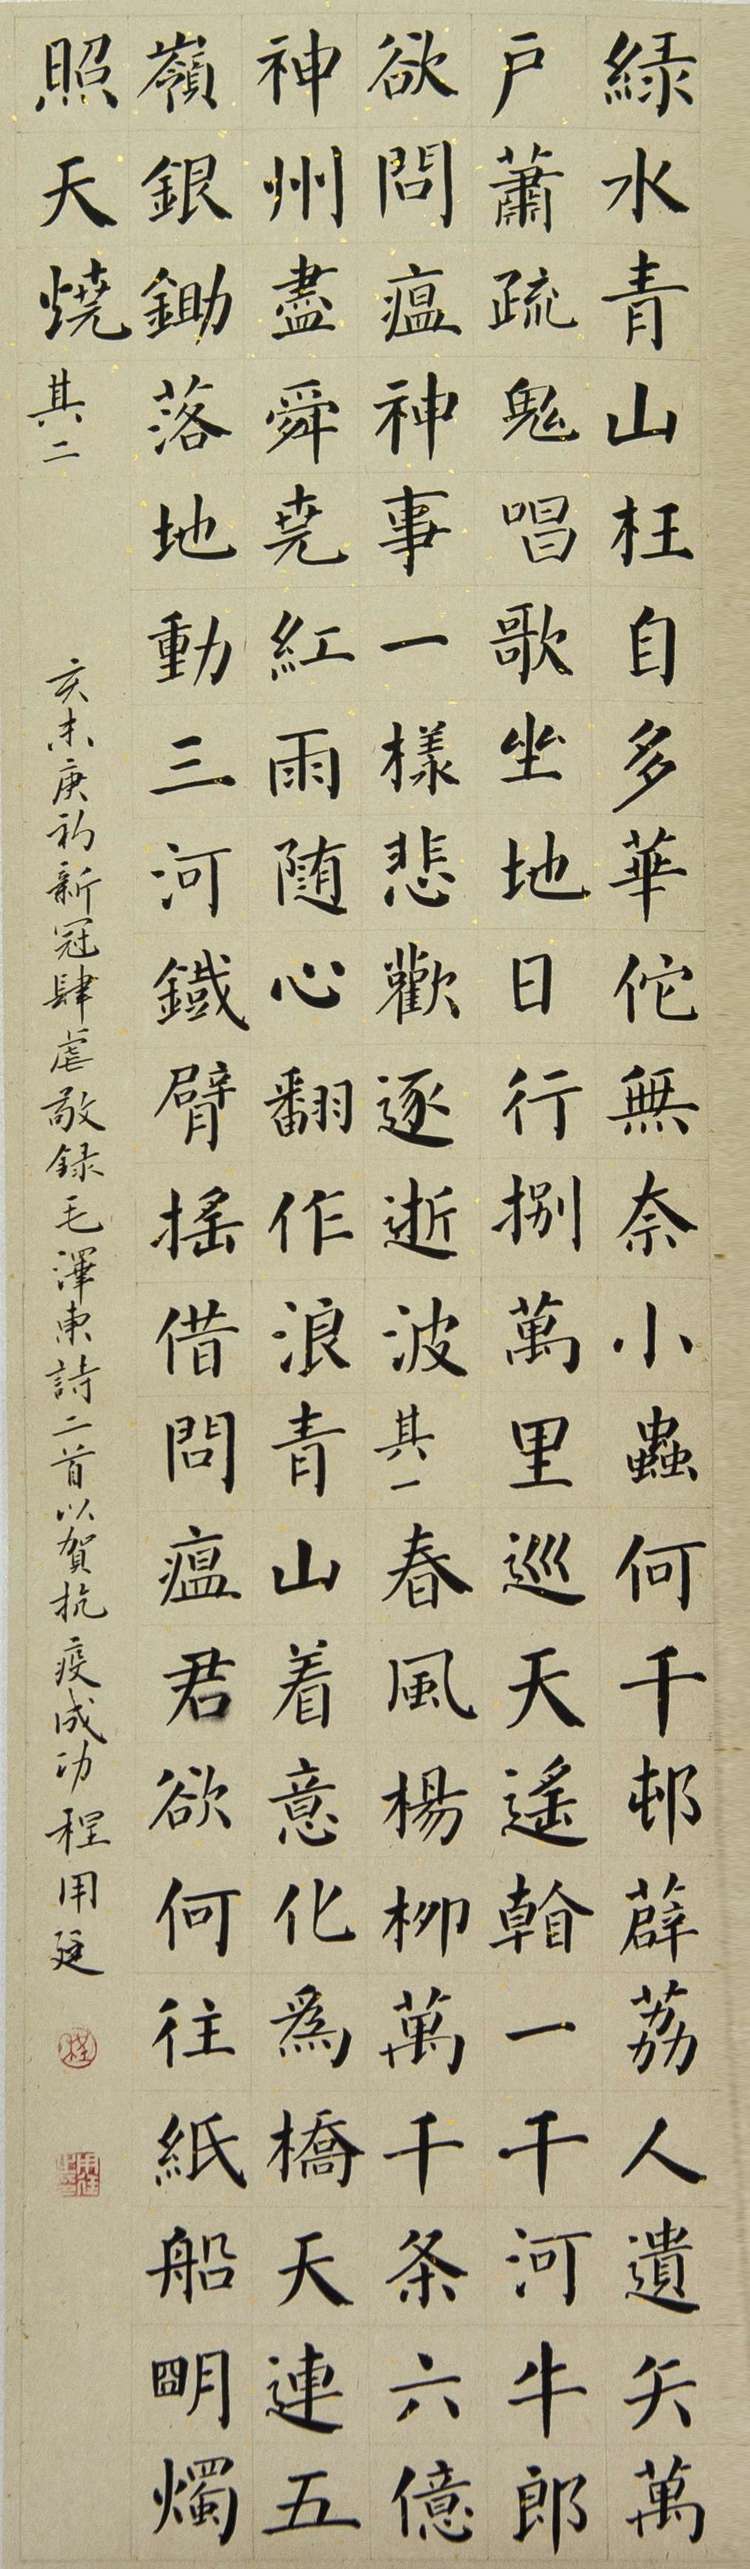 緑水青山枉自多華佗無奈小蟲何千邨薜荔人遺矢萬
戶蕭疏鬼唱歌坐地日行捌萬里巡天遙一千河牛郎
欲問瘟神事一樣悲歡逐逝波其一春風楊柳萬千条六億
神州盡舜尭紅雨随心翻作浪青山着意化為橋天連五
嶺銀鋤落地動三河鐵臂搖借問瘟君欲何往紙船朙燭
照天燒其二
亥末庚初新冠肆虐敬録毛澤東詩二首以賀抗疫成功程用廷